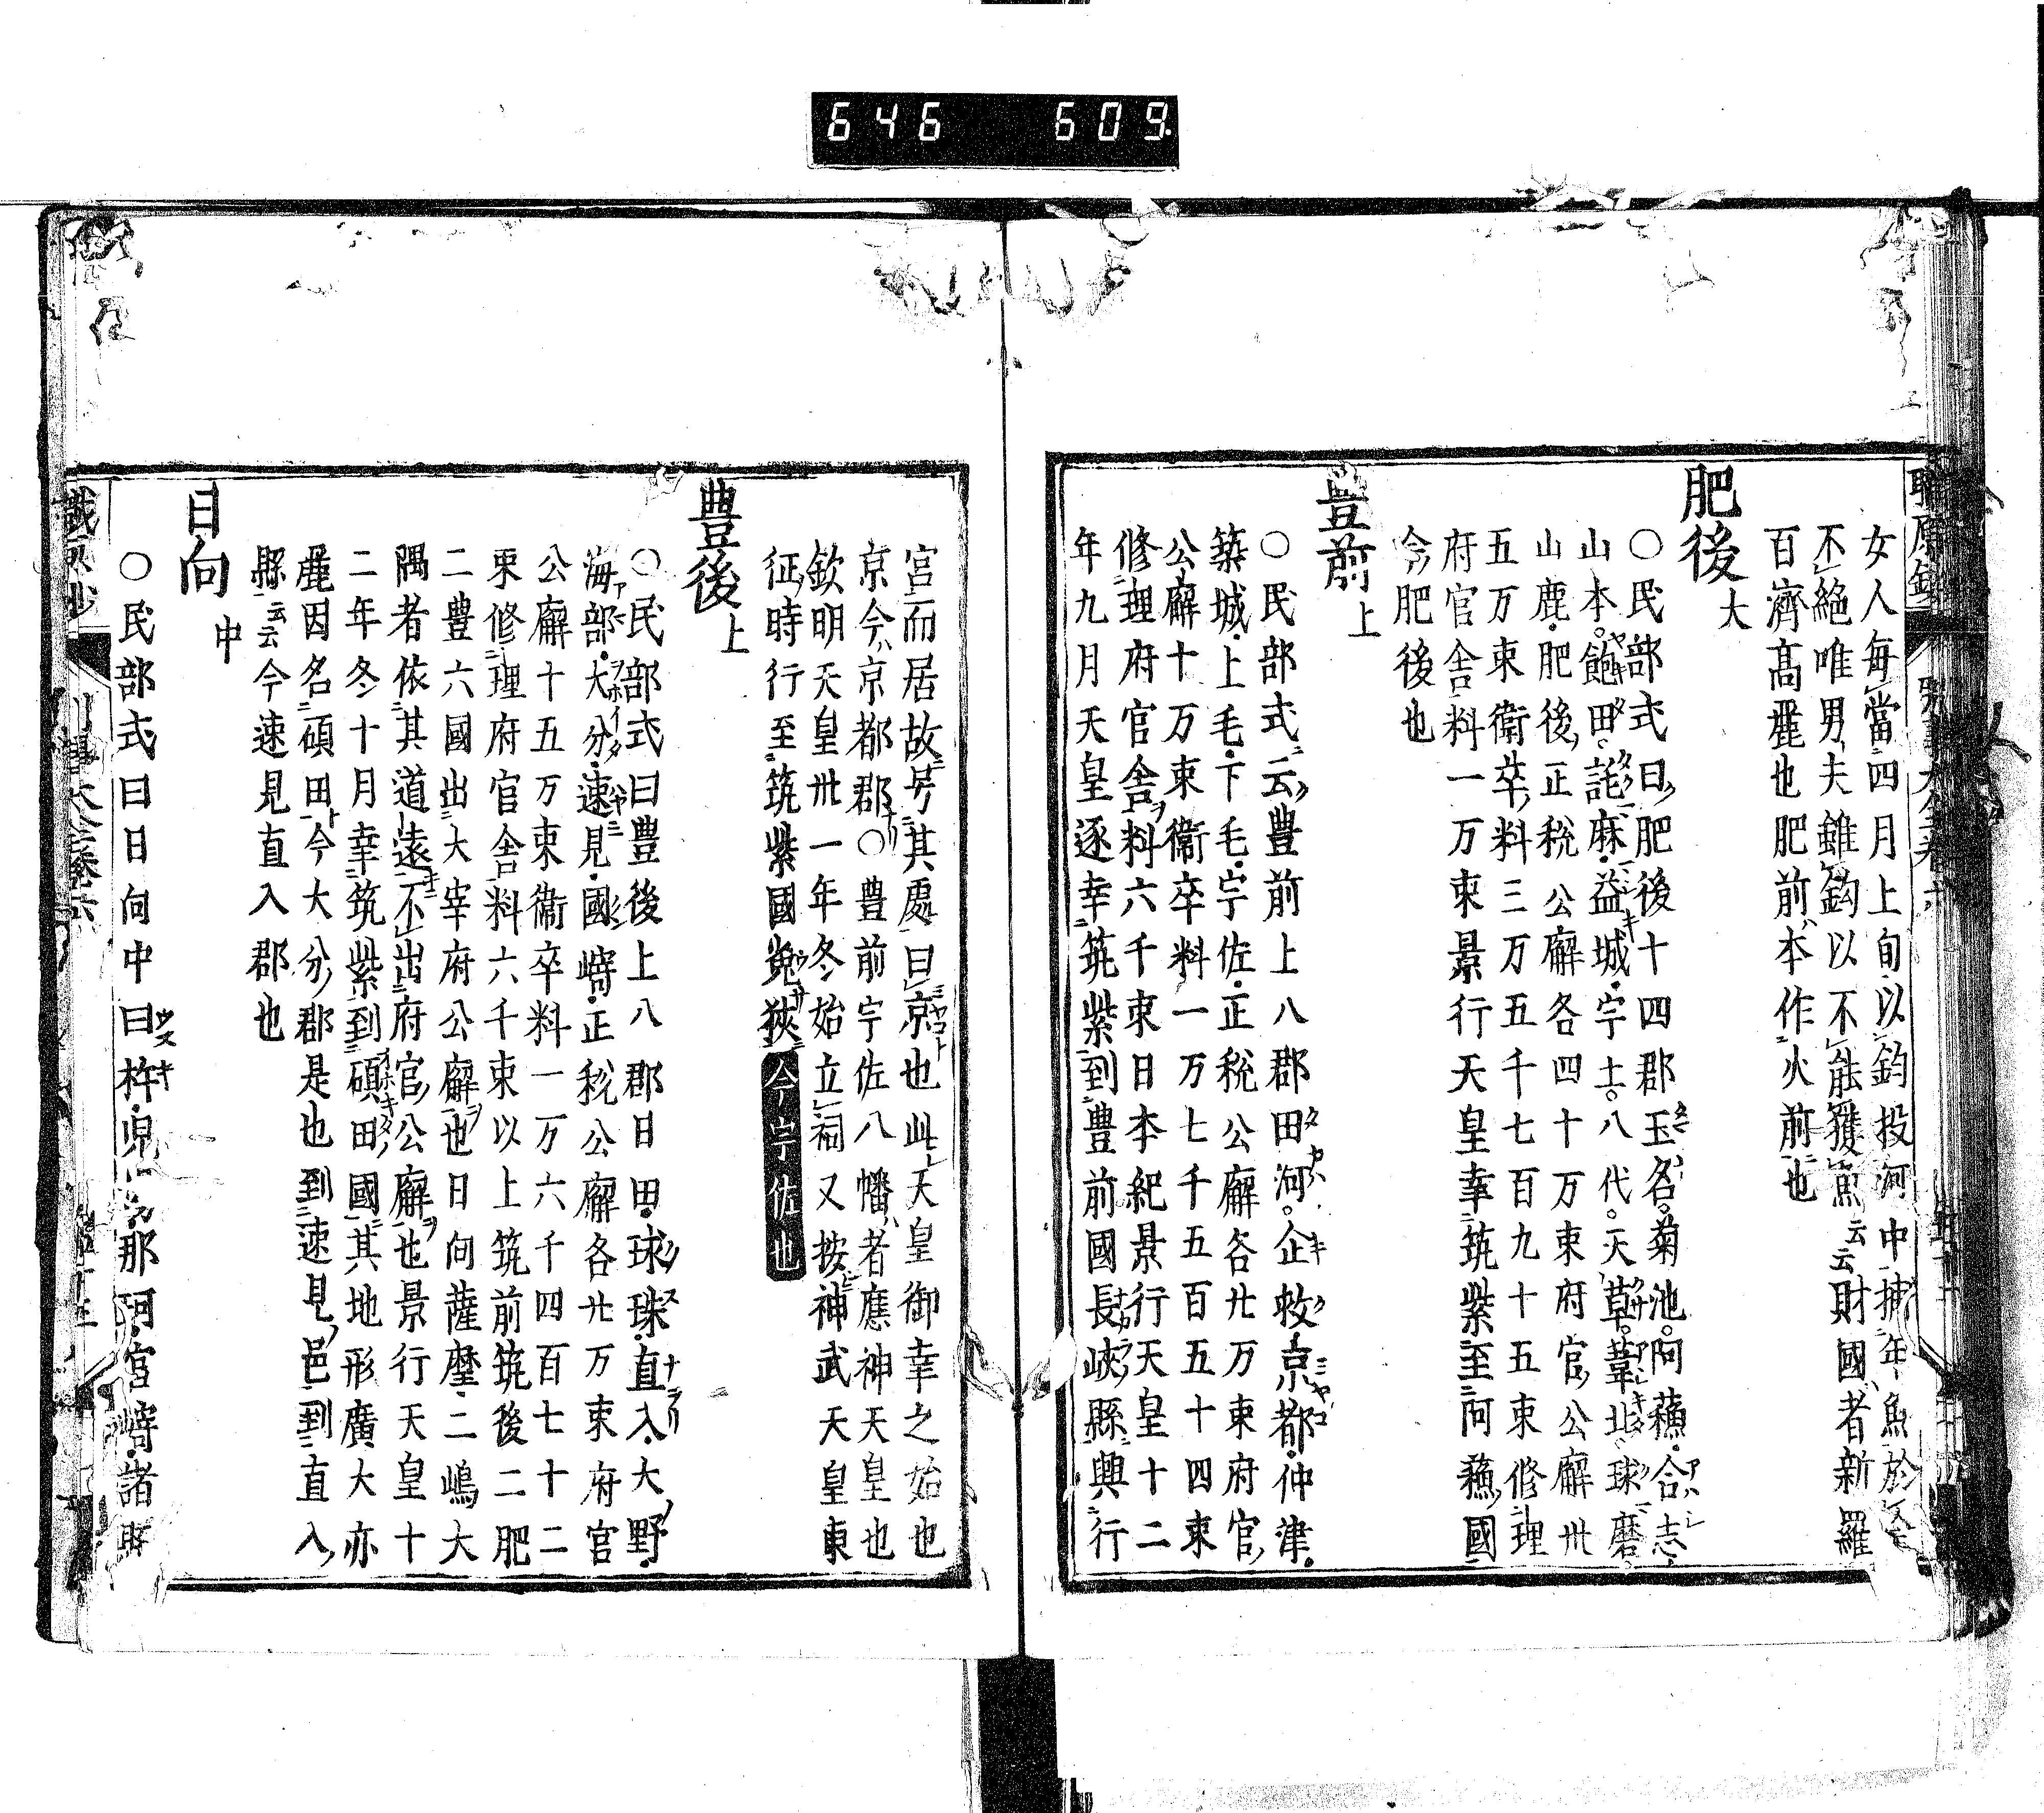 646 609
女人毎當四月上旬以鈎投河中捕年魚於今
不絶唯男夫雖鈎以不能獲魚云云財國者新羅
百濟髙麗也肥前本作火前也
肥後 大
○民部式曰肥後十四郡玉名。菊池。阿蘓・合志・
山本。飽田。託麻・益城・宇土。八代。天草。葦北・球磨・
山鹿・肥後正税公廨各四十万束府官公廨卅
五万束衛卒料三万五千七百九十五束修理
府官舎料一万束景行天皇幸筑紫至阿蘓國
今肥後也
豊前 上
○民部式云豊前上八郡田河。企救・京都・仲津・
築城・上毛・下毛・宇佐・正税公廨各廿万束府官
公廨十万束衛卒料一万七千五百五十四束
修理府官舎料六千束日本紀景行天皇十二
年九月天皇逐幸筑紫到豊前國長峽縣興行
宮而居故号其處曰京也此天皇御幸之始也
京今京都郡○豊前宇佐八幡者應神天皇也
欽明天皇卅一年冬始立祠又按神武天皇東
征時行至筑紫國莵狹今宇佐也
豊後 上
○民部式曰豊後上八郡日田・球珠・直入・大野・
海部・大分・速見・國﨑・正税公廨各廿万束府官
公廨十五万束衛卒料一万六千四百七十二
束修理府官舎料六千束以上筑前筑後二肥
二豊六國出大宰府公廨也日向薩摩・二嶋大
隅者依其道遠不出府官公廨也景行天皇十
二年冬十月幸筑紫到碩田國其地形廣大亦
麗因名碩田今大分郡是也到速見邑到直入
縣云云今速見直入郡也
日向 中
○民部式曰日向中曰杵・児湯那珂・宮﨑・諸縣